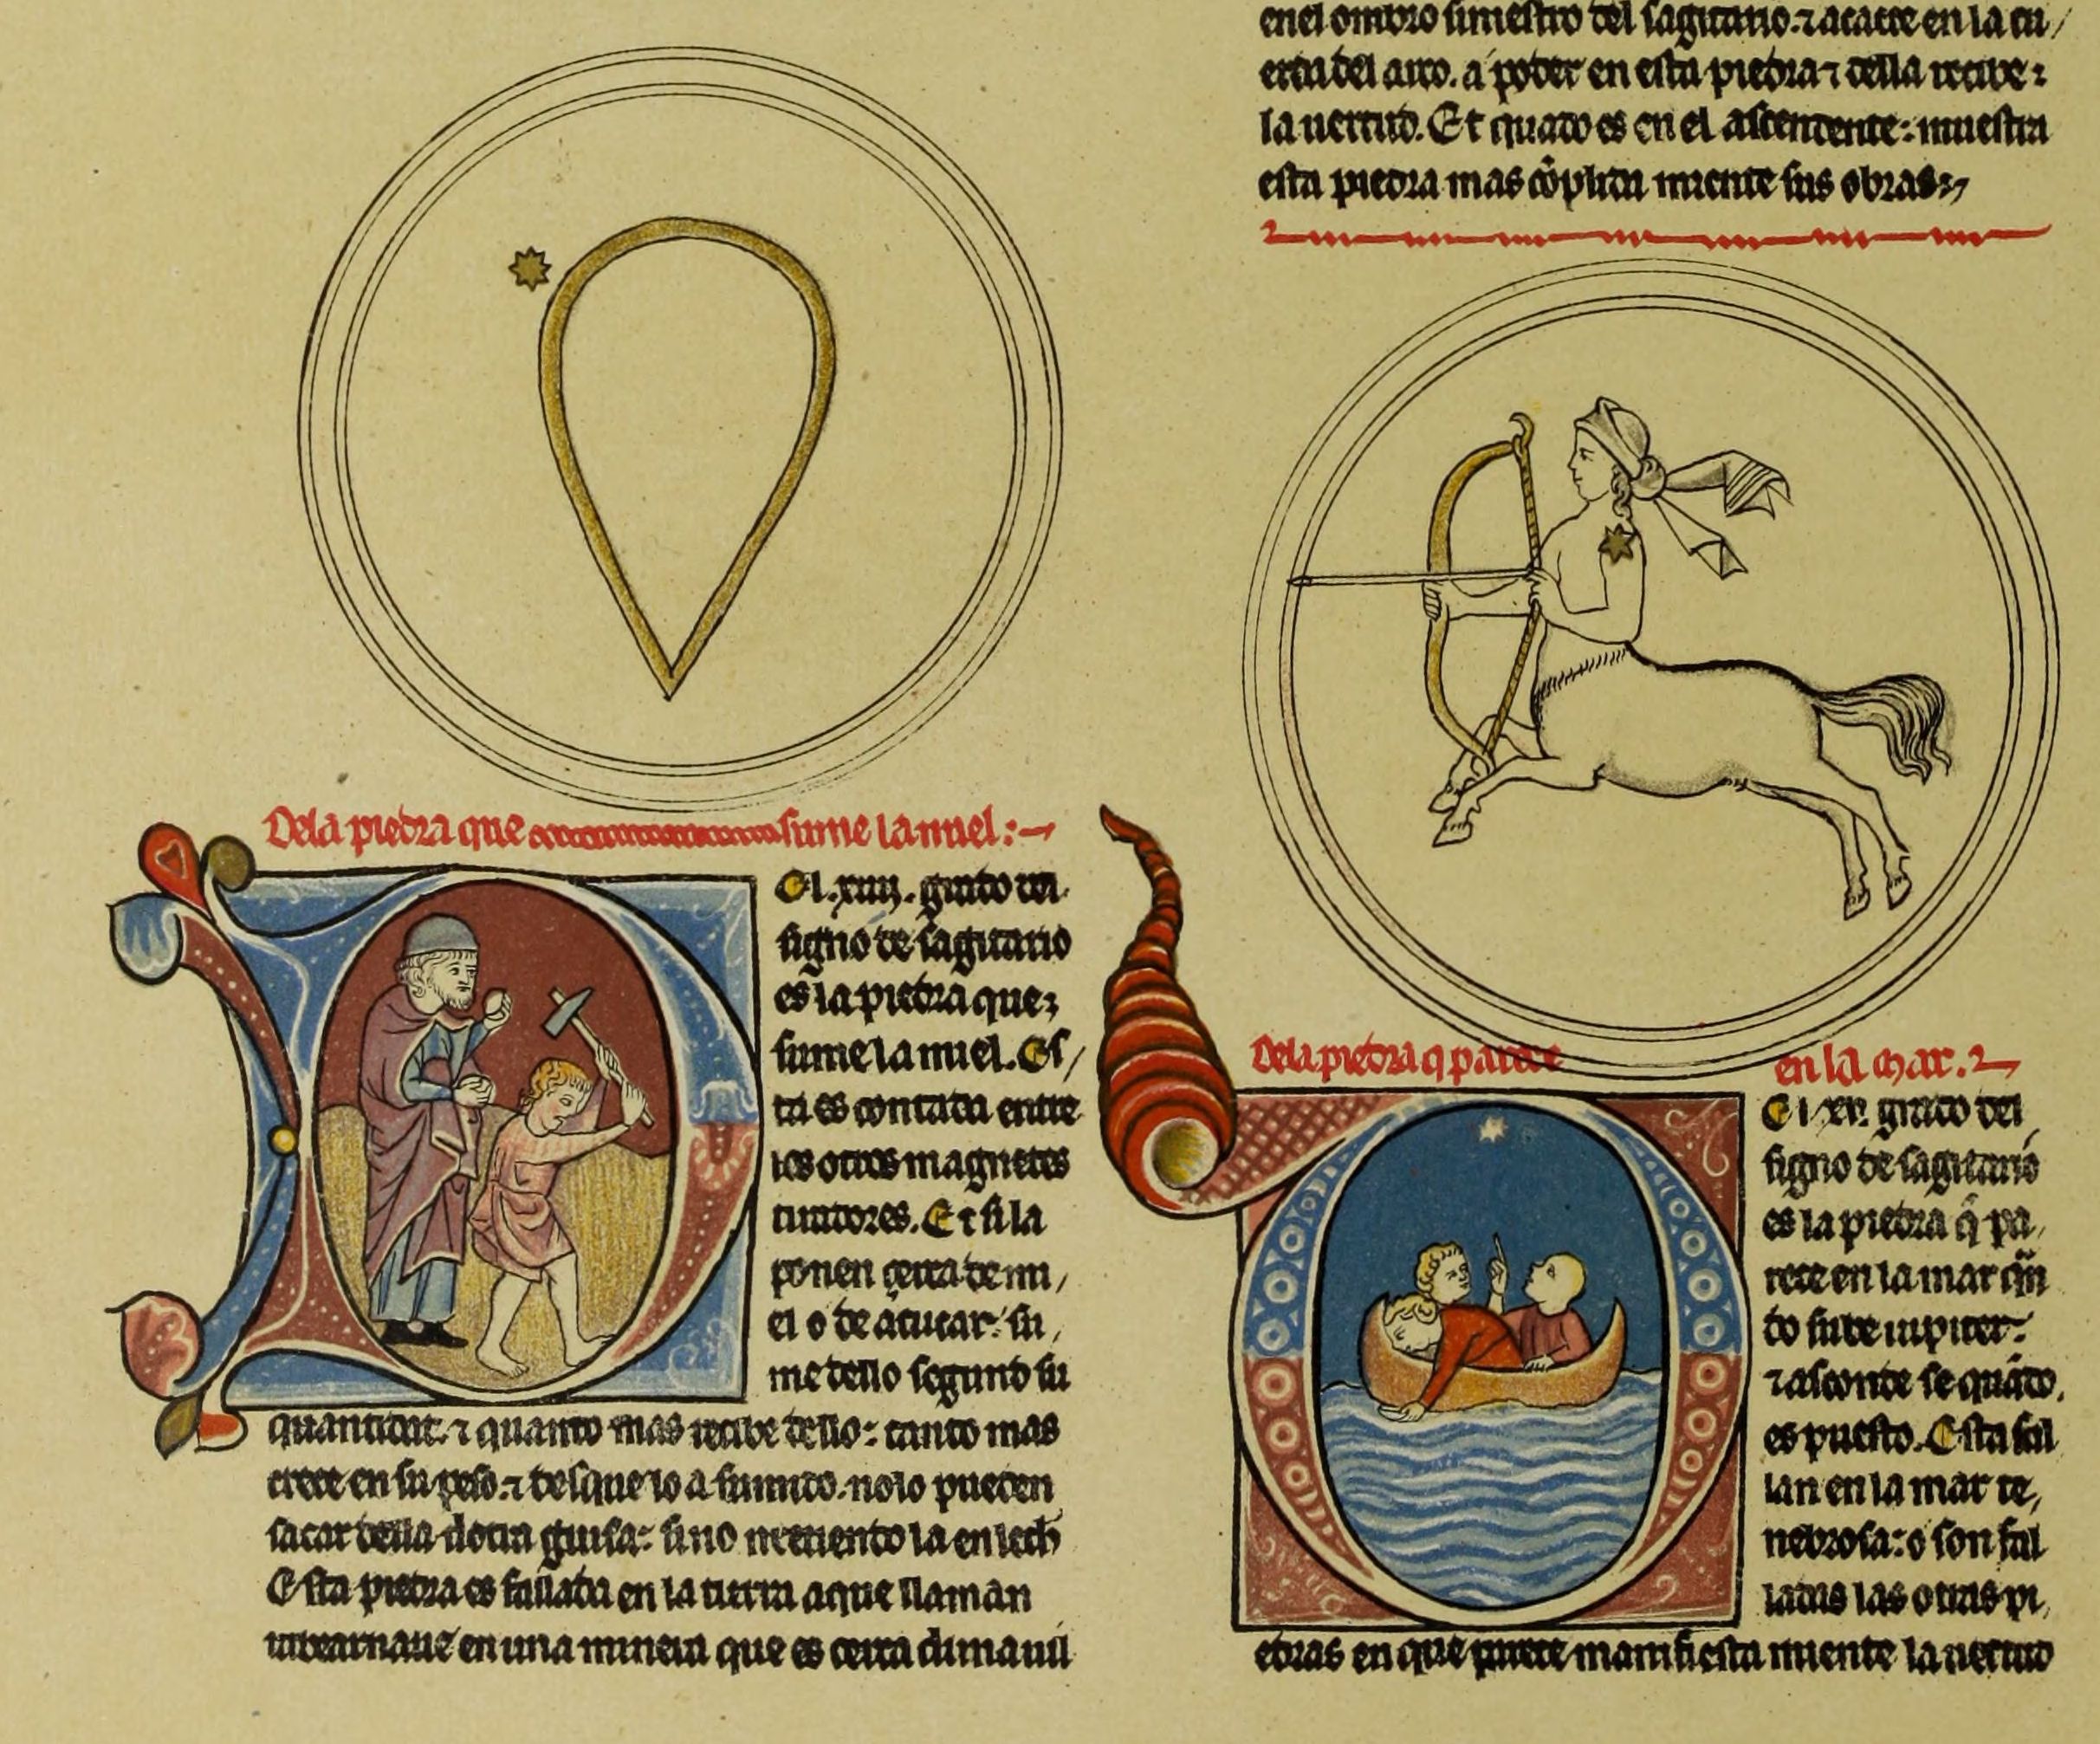 Dela piedra que sume la miel:
El .xiiij. grado del
signo de sagitario
es la piedra que
sume la miel. Es/
ta es contada entre
los otros magnetes
tiradores. Et si la
ponen cerca de mi/
el o de açucar: su/
me dello segund su
quantidat. ⁊ quanto mas recibe dello: tanto mas
crece en su peso. ⁊ desque lo a sumido. nolo pueden
sacar della dotra guisa: sino metiendo la en lech
Esta piedra es fallada en la tierra aque llaman
en una minera que es cerca dun
enel ombro siniestro del sagitario. ⁊ acaece en la cu/
erda del arco. á poder en esta piedra ⁊ della recibe
la uertud. Et quando es en el ascendente: muestra
esta piedra mas cõplida miente sus obras
Dela piedra q parece en la mar.
El .xv. grado del
signo de sagitario
es la piedra q̃ pa/
rece en la mar quã
do sube iupiter:
⁊ asconde se quãdo
es puesto. Esta fal
lan en la mar te/
nebrosa: o son fal
ladas las otras pi/
edras en que parece manifiesta miente la uertud